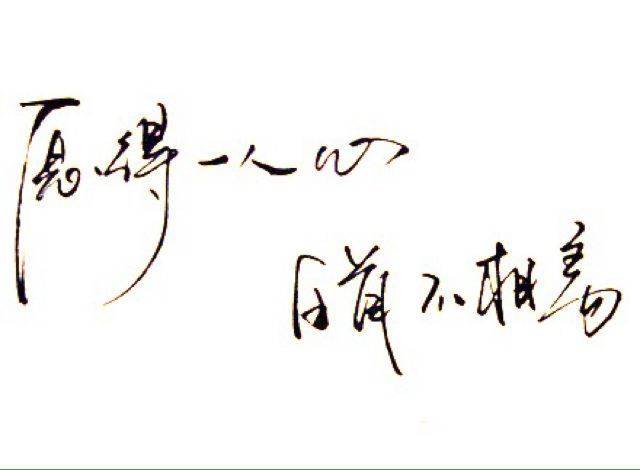 愿得一人心
白首不相离